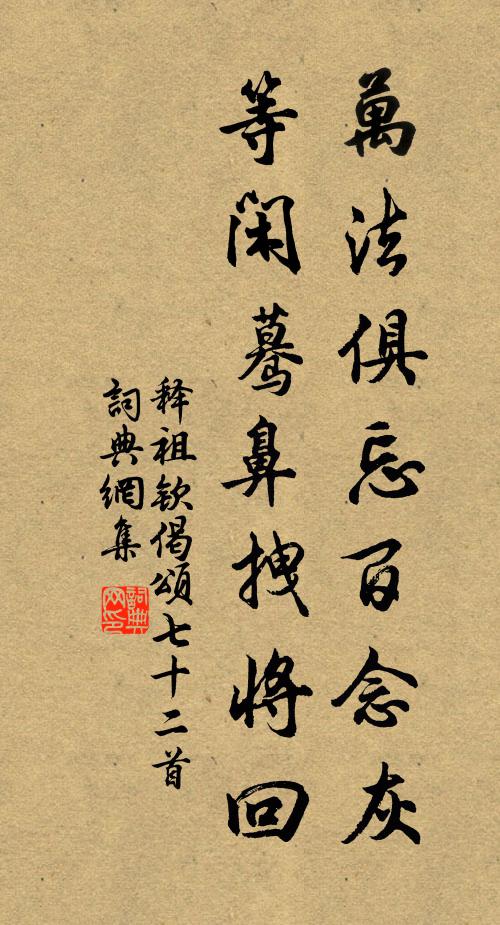 萬法俱忘百念灰
等閑驀鼻拽將回
釋祖欽偈頌七十二首
詞典網集
詞典网印